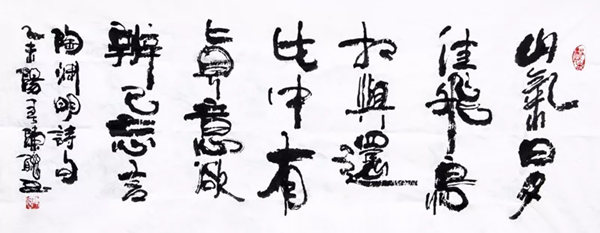 山氣日夕
佳飛鳥
相與還
此中有
真意欲
辨已忘言
陶渊明詩句